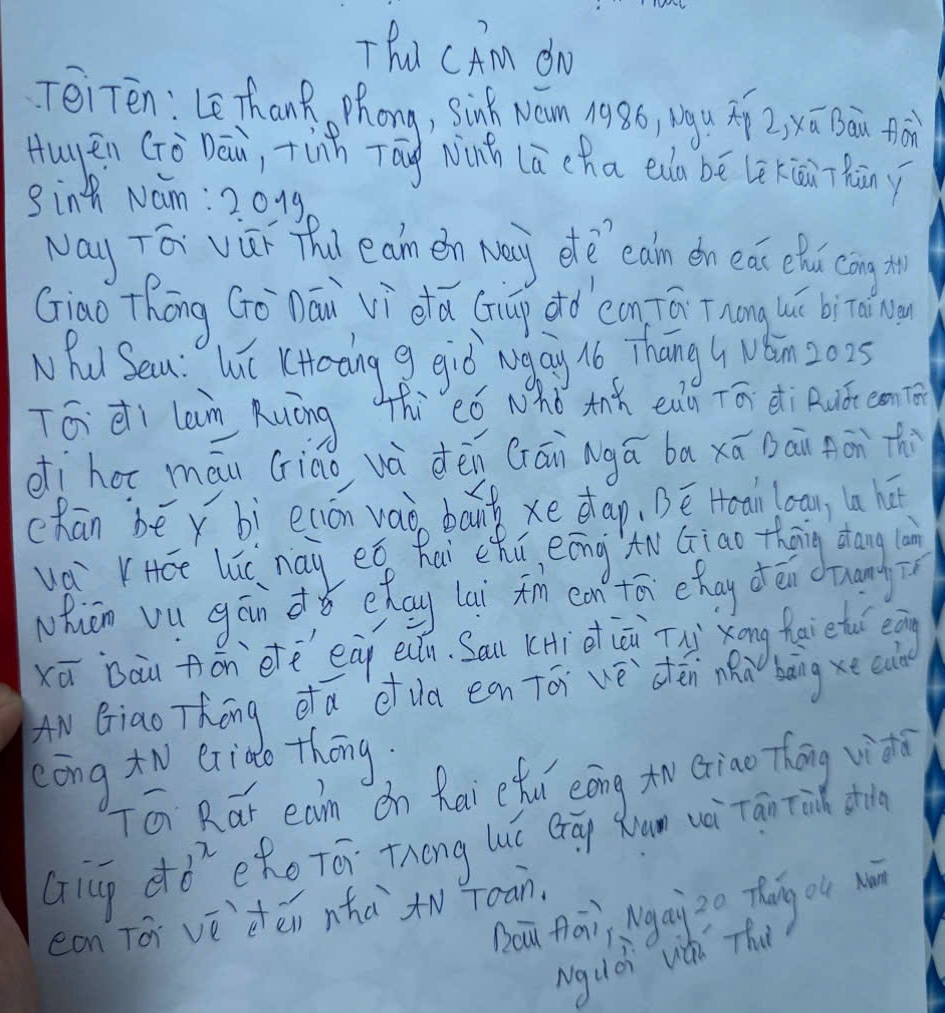 THƯ CẢM ƠN
Tôi Tên: Lê Thanh Phong, Sinh Năm 1986, Ngụ Ấp 2, xã Bàu Đồn
Huyện Gò Dầu, tỉnh Tây Ninh Là cha của bé Lê Kiều Thiên Ý
Sinh Năm: 2019
Nay Tôi viết Thư cảm ơn Này để cảm ơn các chú Công AN
Giao Thông Gò Dầu vì đã Giúp đở con Tôi Trong lúc bị Tai Nạn
Như Sau: lúc KHoảng 9 giờ Ngày 16 Tháng 4 Năm 2025
Tôi đi làm Ruộng Thì có Nhờ Anh của Tôi đi Rước con Tôi
đi học mẫu Giáo và đến Gần Ngã ba xã Bàu Đồn Thì
chân bé Ý bị cuốn vào bánh xe đạp. Bé Hoản loạn, la hét
và KHóc lúc này có hai chú công AN Giao thông đang làm
Nhiệm vụ gần đó chạy lại ẩm con Tôi chạy đến Trạm Y Tế
xã Bàu Đồn để cấp cứu. Sau KHi điều Trị xong hai chú công
AN Giao Thông đã đưa con Tôi về đến nhà bằng xe của
công AN Giao thông.
Tôi Rất cảm ơn hai chú công AN Giao Thông vì đã
Giúp đở cho Tôi Trong lúc Gặp Nạn và Tận Tình đưa
con Tôi về đến nhà AN Toàn.
Bàu Đồn, Ngày 20 Tháng 04 Năm
Người viết Thư